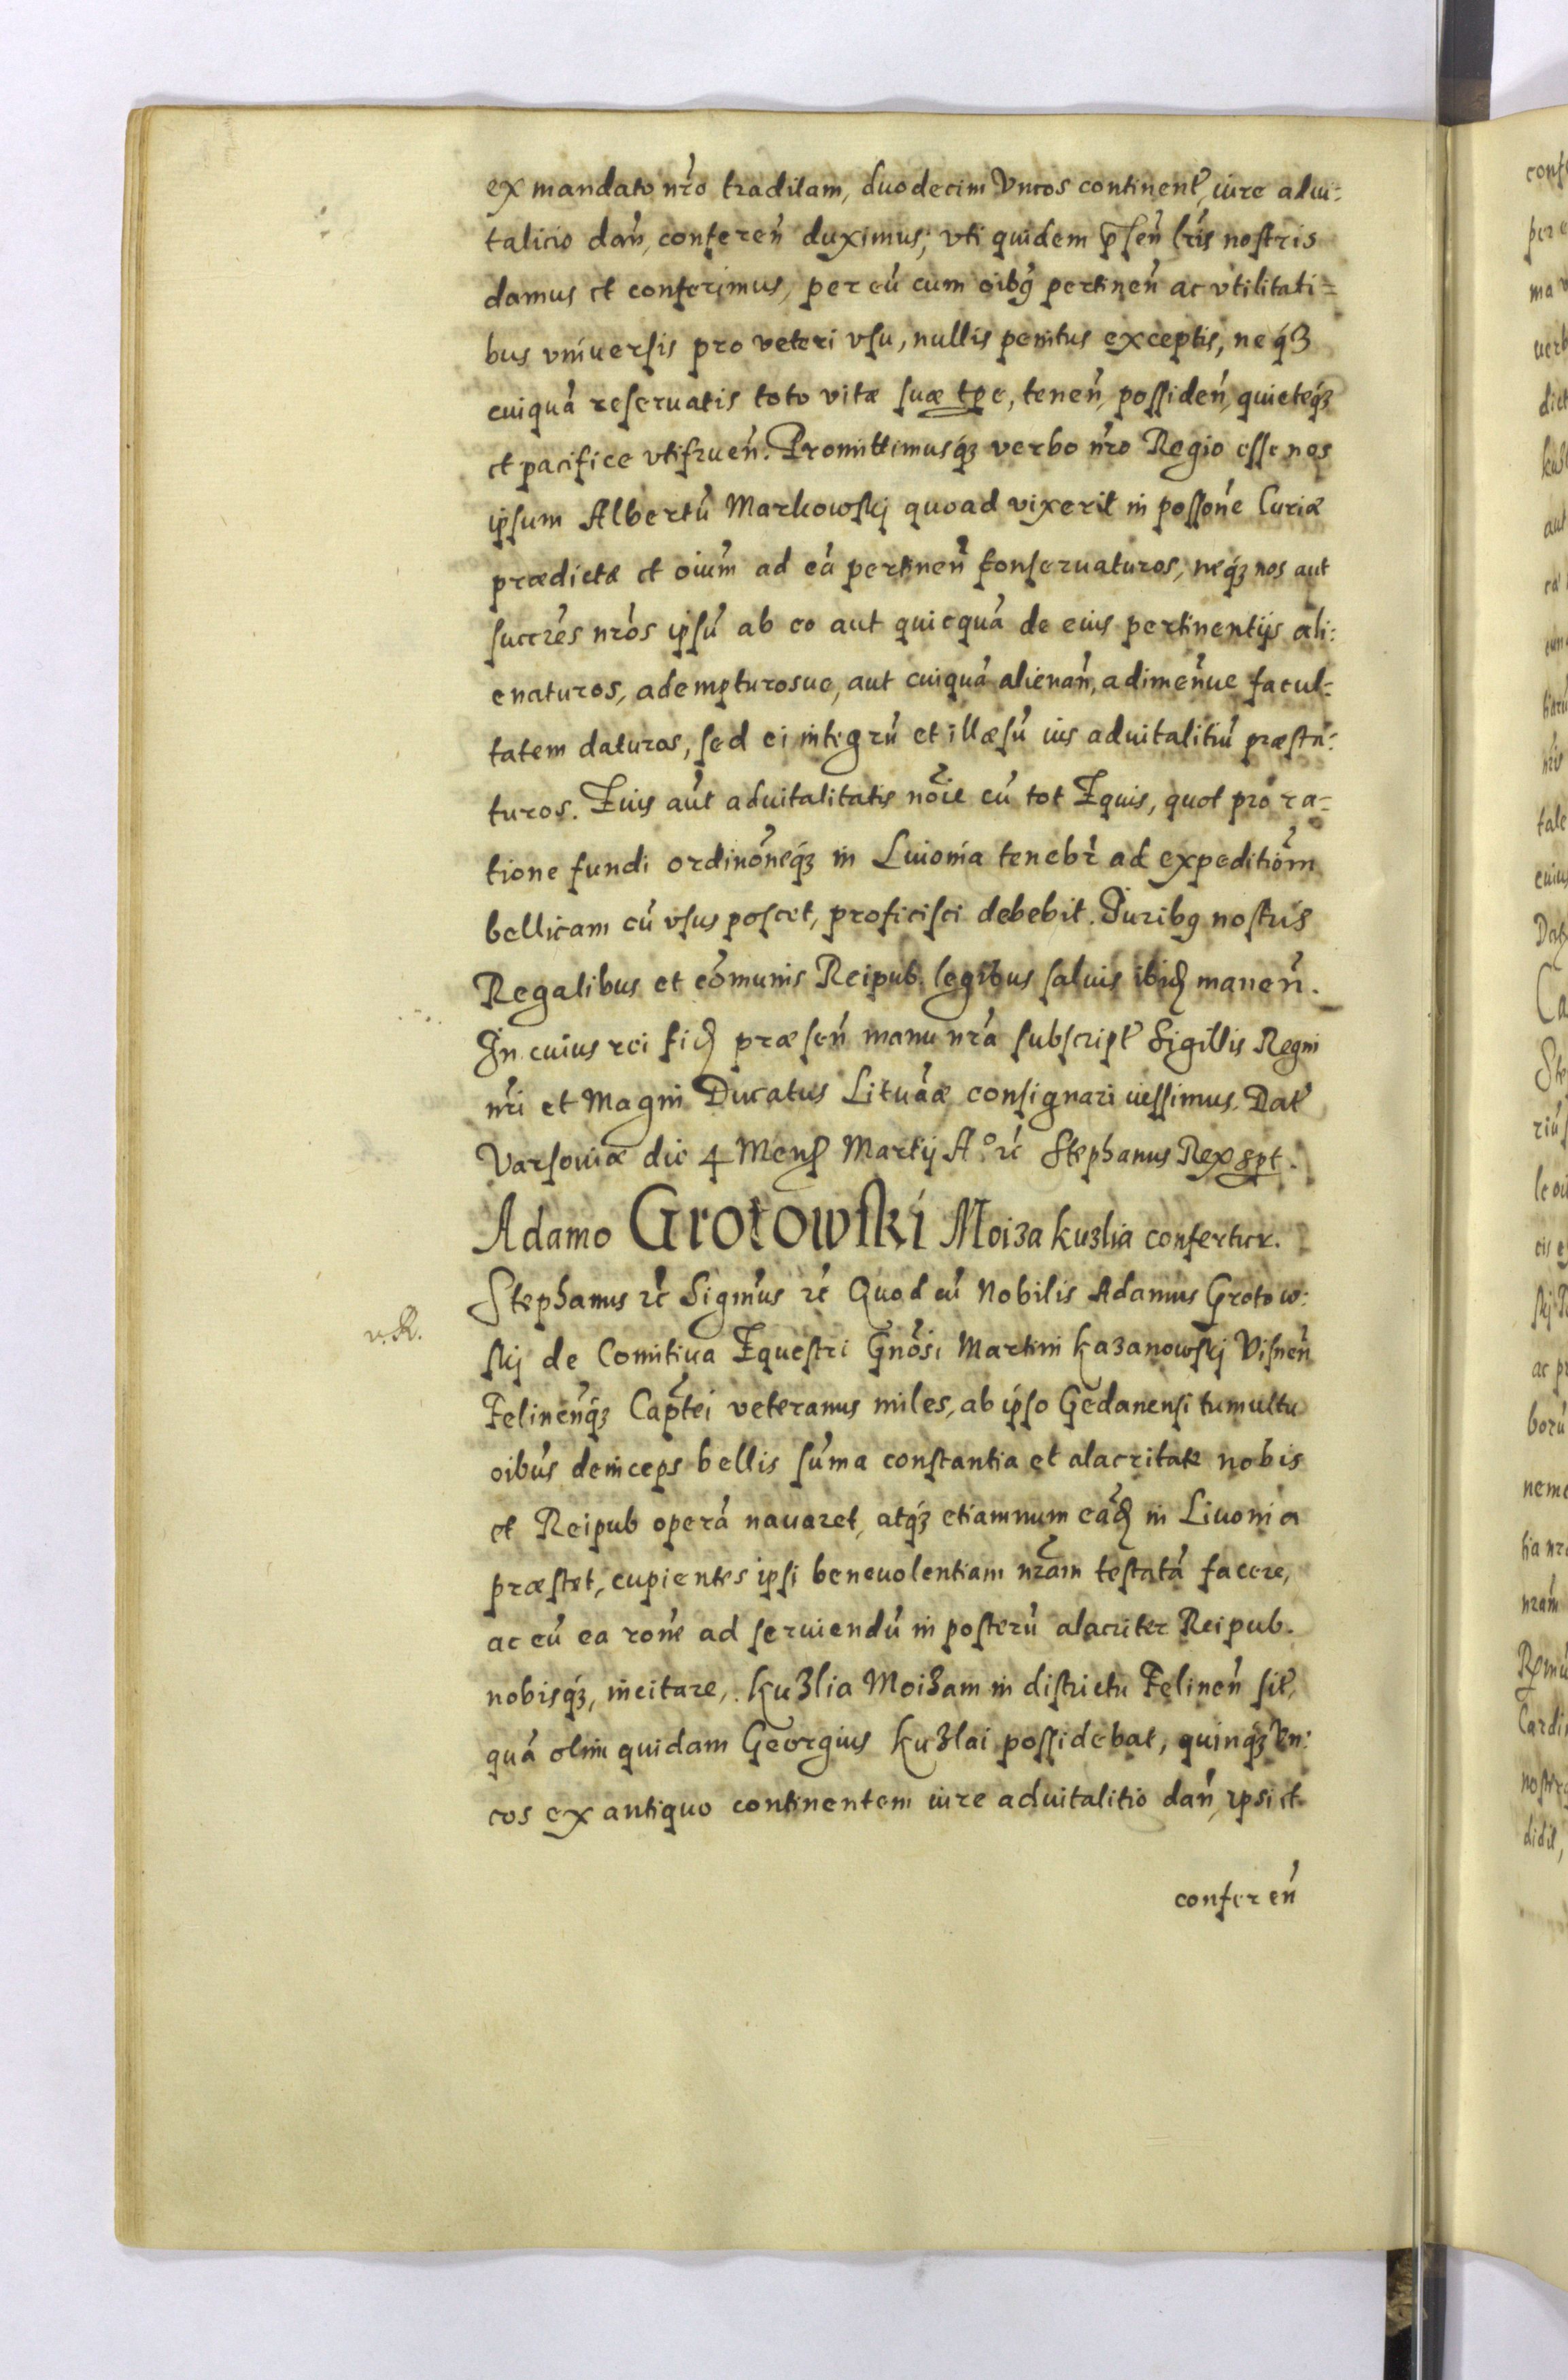 ex mandato nr̃o traditam, duodecim Vncos continent̃, iure adui:
talicio dan̄, conferen̄ duximus; vti quidem p̃sen̄ lr̃is nostris
damus et conferimus, per eū cum oībꝫ pertinen̄ ac vtilitati=
bus vniuersis pro veteri vsu, nullis penitus exceptis, neqꝫ
cuiquā reseruatis toto vitæ suæ tp̄e, tenen̄, possiden̄, quieteqꝫ
et pacifice vtifruen̄. Promittimusqꝫ verbo nr̃o Regio esse nos
ipsum Albertū Markowskj quoad vixerit in possōne Curiæ
prædictæ et oium̄ ad eā pertinen̄ conseruaturos, neqꝫ nos aut
succr̃es nr̃os ipsū ab eo aut quicquā de eius pertinentijs ali:
enaturos, adempturosue, aut cuiquā alienan̄, adimen̄ue facul=
tatem daturos, sed ei integrū et illæsū ius aduitalitiū præsta:
turos. Eius aūt aduitalitatis nōie cū tot Equis, quot pro ra=
tione fundi ordinōneqꝫ in Liuonia tenebr̃ ad expeditiōm
bellicam cū vsus poscet, proficisci debebit. Juribꝫ nostris
Regalibus et cōmunis Reipub. legibus saluis ibidꝫ manen̄.
In cuius rei fidꝫ præsen̄ manu nr̃a subscript̃ Sigillis Regni
nr̃i et Magni Ducatus Lituāæ consignari iussimus. Dat̃
Varsouiæ die 4 Mensꝫ Martij Aº ꝛc̄ Stephanus Rex spt.
Adamo Grotowski Moiza kuzlia confertur.
Stephanus ꝛc̄ Signm̄us ꝛc̄ Quod cū Nobilis Adamus Grotow:
v. R.
skj de Comitiua Equestri Gnōsi Martini Kazanowskj Visnen̄
Felinen̄qꝫ Capt̄ei veteranus miles, ab ipso Gedanensi tumultu
oibūs deinceps bellis sūma constantia et alacritate nobis
et Reipub operā nauaret, atqꝫ etiamnum eādꝫ in Liuonia
præstet, cupientes ipsi beneuolentiam nr̃am testatā facere,
ac eū ea rōne ad seruiendū in posterū alacriter Reipub.
nobisqꝫ, incitare, Kuzlia Moizam in districtu Felinen̄ sit̃,
quā olim quidam Georgius Kuzlai possidebat, quinqꝫ Vn:
cos ex antiquo continentem iure aduitalitio dan̄, ipsi et
conferen̄